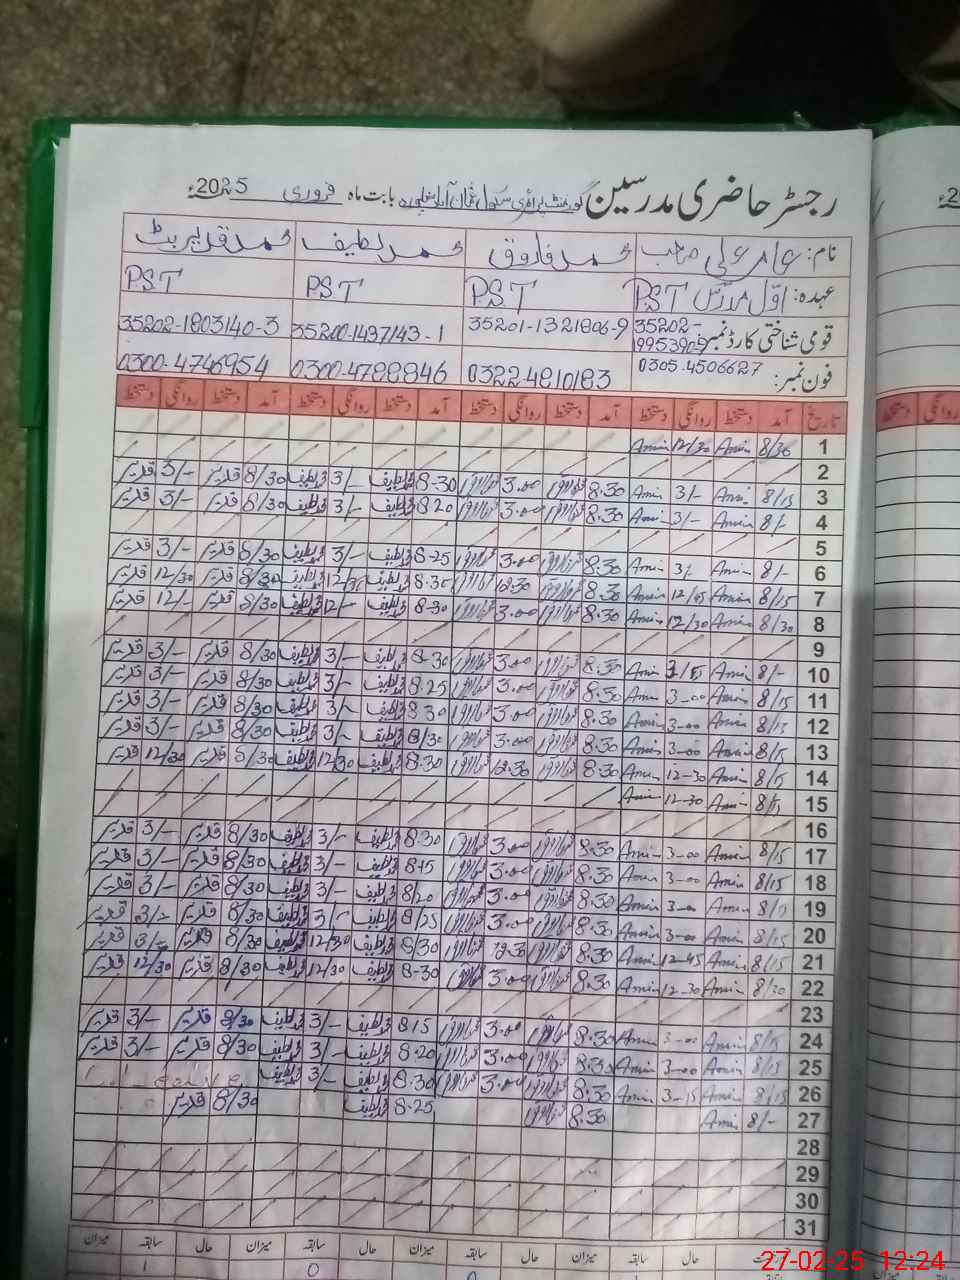 رجسٹر حاضری مدرسین گورنمنٹ پرائمری سکول بابت ماہ فروری 2025ء
نام: عامر علی صاحب محمد فاروق محمد لطیف محمد قدیر بٹ
عہدہ: اول مدرس PST PST PST PST
قومی شناختی کارڈ نمبر: 35201-1321806-9 35200-1437143-1 35202-1803140-3
فون نمبر: 0305-4506627 0322-4810183 0300-4788846 0300-4746954
تاریخ آمد دستخط روانگی دستخط آمد دستخط روانگی دستخط آمد دستخط روانگی دستخط آمد دستخط روانگی دستخط
1 8/30 Amin 12/30 Amin
2
3 8/15 Amin 3/- Amin 8.30 3.00 8-30 محمد لطیف 3/- محمد لطیف 8/30 قدیر 3/- قدیر
4 8/- Amin 3/- Amin 8.30 3.00 8.20 محمد لطیف 3/- محمد لطیف 8/30 قدیر 3/- قدیر
5
6 8/- Amin 3/- Amin 8.30 3.00 8-25 محمد لطیف 3/- محمد لطیف 8/30 قدیر 3/- قدیر
7 8/15 Amin Amin 8.30 12.30 8.30 محمد لطیف 12/30 محمد لطیف 8/30 قدیر 12/30 قدیر
8 8/30 Amin 12/30 Amin 8.30 3.00 8-30 محمد لطیف 12/- محمد لطیف 8/30 قدیر 12/- قدیر
9
10 8/- Amin Amin 8.30 3.00 8-30 محمد لطیف 3/- محمد لطیف 8/30 قدیر 3/- قدیر
11 8/15 Amin 3-00 Amin 8.30 3.00 8.25 محمد لطیف 3/- محمد لطیف 8/30 قدیر 3/- قدیر
12 8/15 Amin 3-00 Amin 8.30 3.00 8.30 محمد لطیف 3/- محمد لطیف 8/30 قدیر 3/- قدیر
13 8/15 Amin 3-00 Amin 8.30 3.00 8/30 محمد لطیف 3/- محمد لطیف 8/30 قدیر 3/- قدیر
14 8/15 Amin 12-30 Amin 8.30 12.30 8.30 محمد لطیف 12/30 محمد لطیف 8/30 قدیر 12/30 قدیر
15 8/15 Amin 12-30 Amin
16
17 8/15 Amin 3-00 Amin 8.30 3.00 8.30 محمد لطیف 3/- محمد لطیف 8/30 قدیر 3/- قدیر
18 8/15 Amin 3-00 Amin 8.30 3.00 8.15 محمد لطیف 3/- محمد لطیف 8/30 قدیر 3/- قدیر
19 8/15 Amin 3-00 Amin 8.30 3.00 8/20 محمد لطیف 3/- محمد لطیف 8/30 قدیر 3/- قدیر
20 8/15 Amin 3-00 Amin 8.30 3.00 8/25 محمد لطیف 3/- محمد لطیف 8/30 قدیر 3/- قدیر
21 8/15 Amin 12-45 Amin 8.30 12.30 8/30 محمد لطیف 12/30 محمد لطیف 8/30 قدیر قدیر
22 8/30 Amin 12-30 Amin 8.30 3.00 8-30 محمد لطیف 12/30 محمد لطیف 8/30 قدیر 12/30 قدیر
23
24 8/15 Amin 3-00 Amin 8.30 3.00 8.15 محمد لطیف 3/- محمد لطیف 8/30 قدیر 3/- قدیر
25 8/15 Amin 3-00 Amin 8.30 3.00 8.20 محمد لطیف 3/- محمد لطیف 8/30 قدیر 3/- قدیر
26 8/15 Amin 3-15 Amin 8.30 3.00 8.30 محمد لطیف 3/- محمد لطیف
27 8/- Amin 8.30 8.25 محمد لطیف 8/30 قدیر
28
29
30
31
حال سابقہ میزان حال سابقہ میزان حال سابقہ میزان
27-02-25 12:24